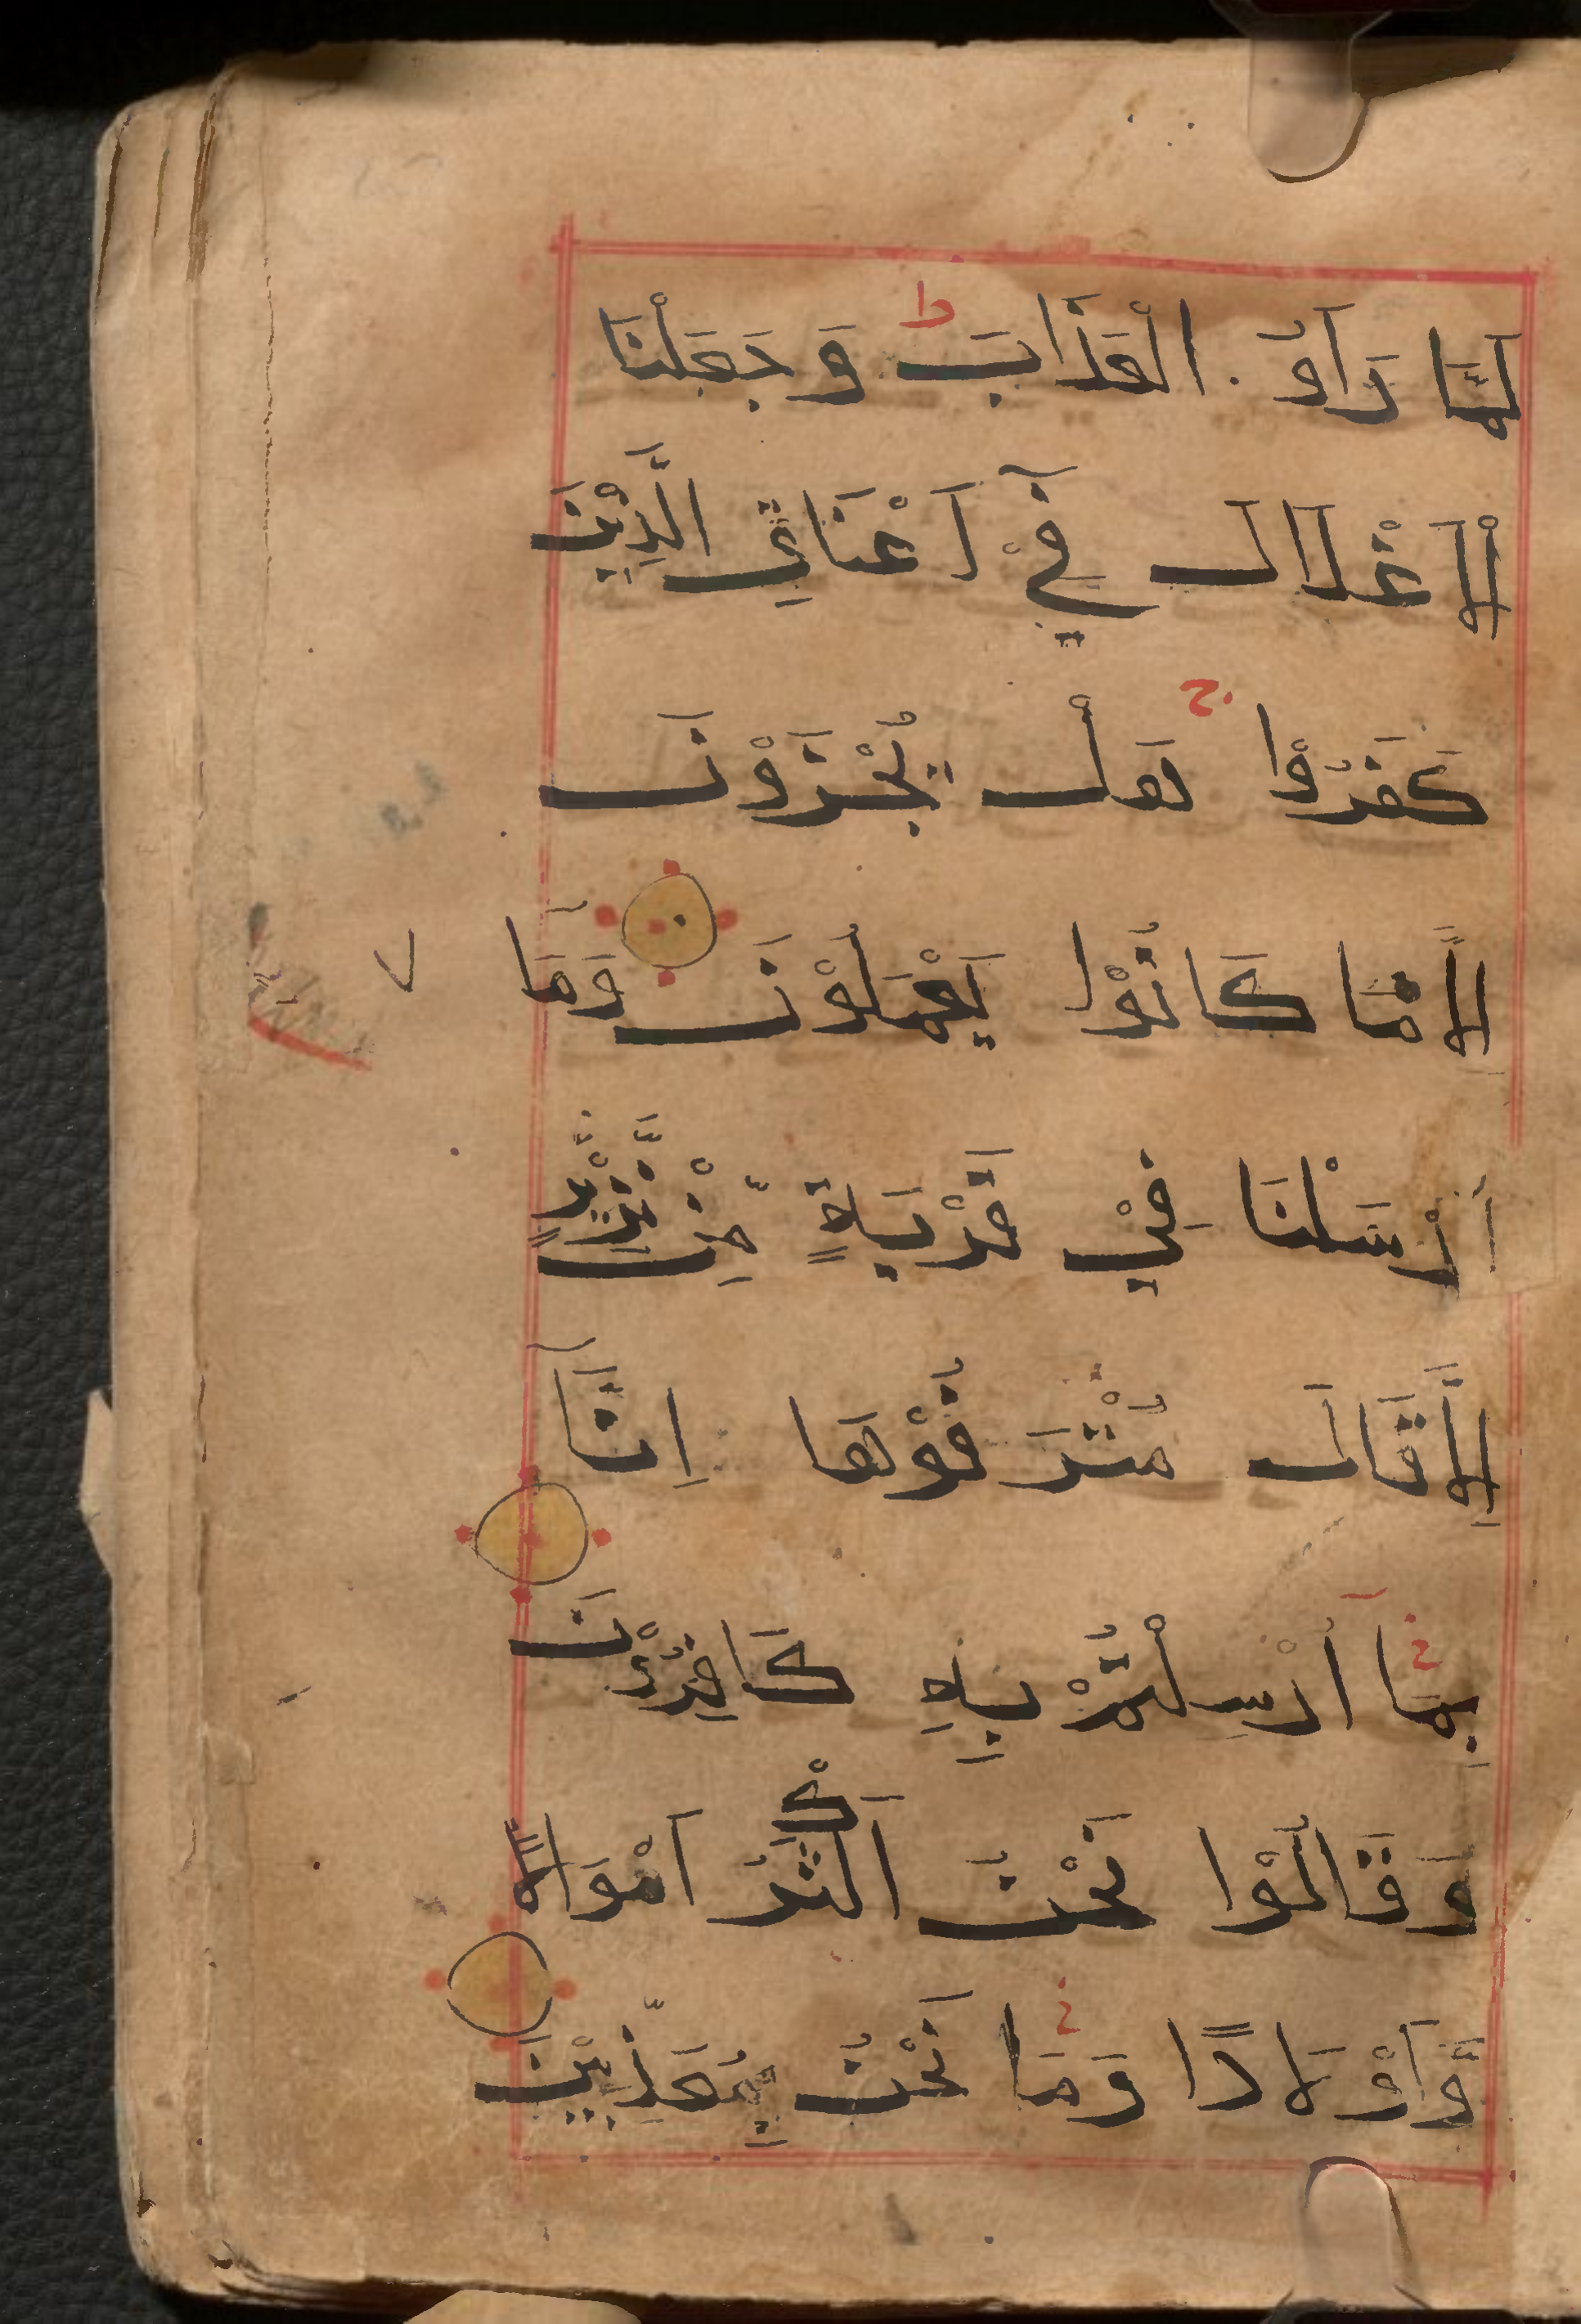 لَمَّا رَاَوُ الْعَذَابَ ط وَجَعَلْنَا
الْاَغْلَالَ فِيْٓ اَعْنَاقِ الَّذِيْنَ
كَفَرُوْا ج هَلْ يُجْزَوْنَ
اِلَّا مَا كَانُوْا يَعْمَلُوْنَ وَمَآ
اَرْسَلْنَا فِيْ قَرْيَةٍ مِّنْ نَّذِيْرٍ
اِلَّا قَالَ مُتْرَفُوْهَا اِنَّا
بِمَآ اُرْسِلْتُمْ بِهٖ كَافِرُوْنَ
وَقَالُوْا نَحْنُ اَكْثَرُ اَمْوَالًا
وَّاَوْلَادًا وَمَا نَحْنُ بِمُعَذَّبِيْنَ